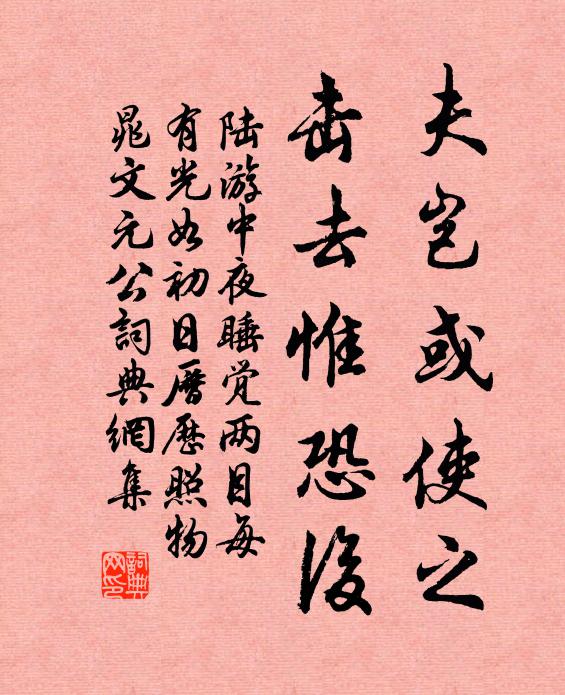 夫岂或使之
击去惟恐後
陆游中夜睡觉两目每
有光如初日曆歷照物
晁文元公詞典網集
詞典
网印